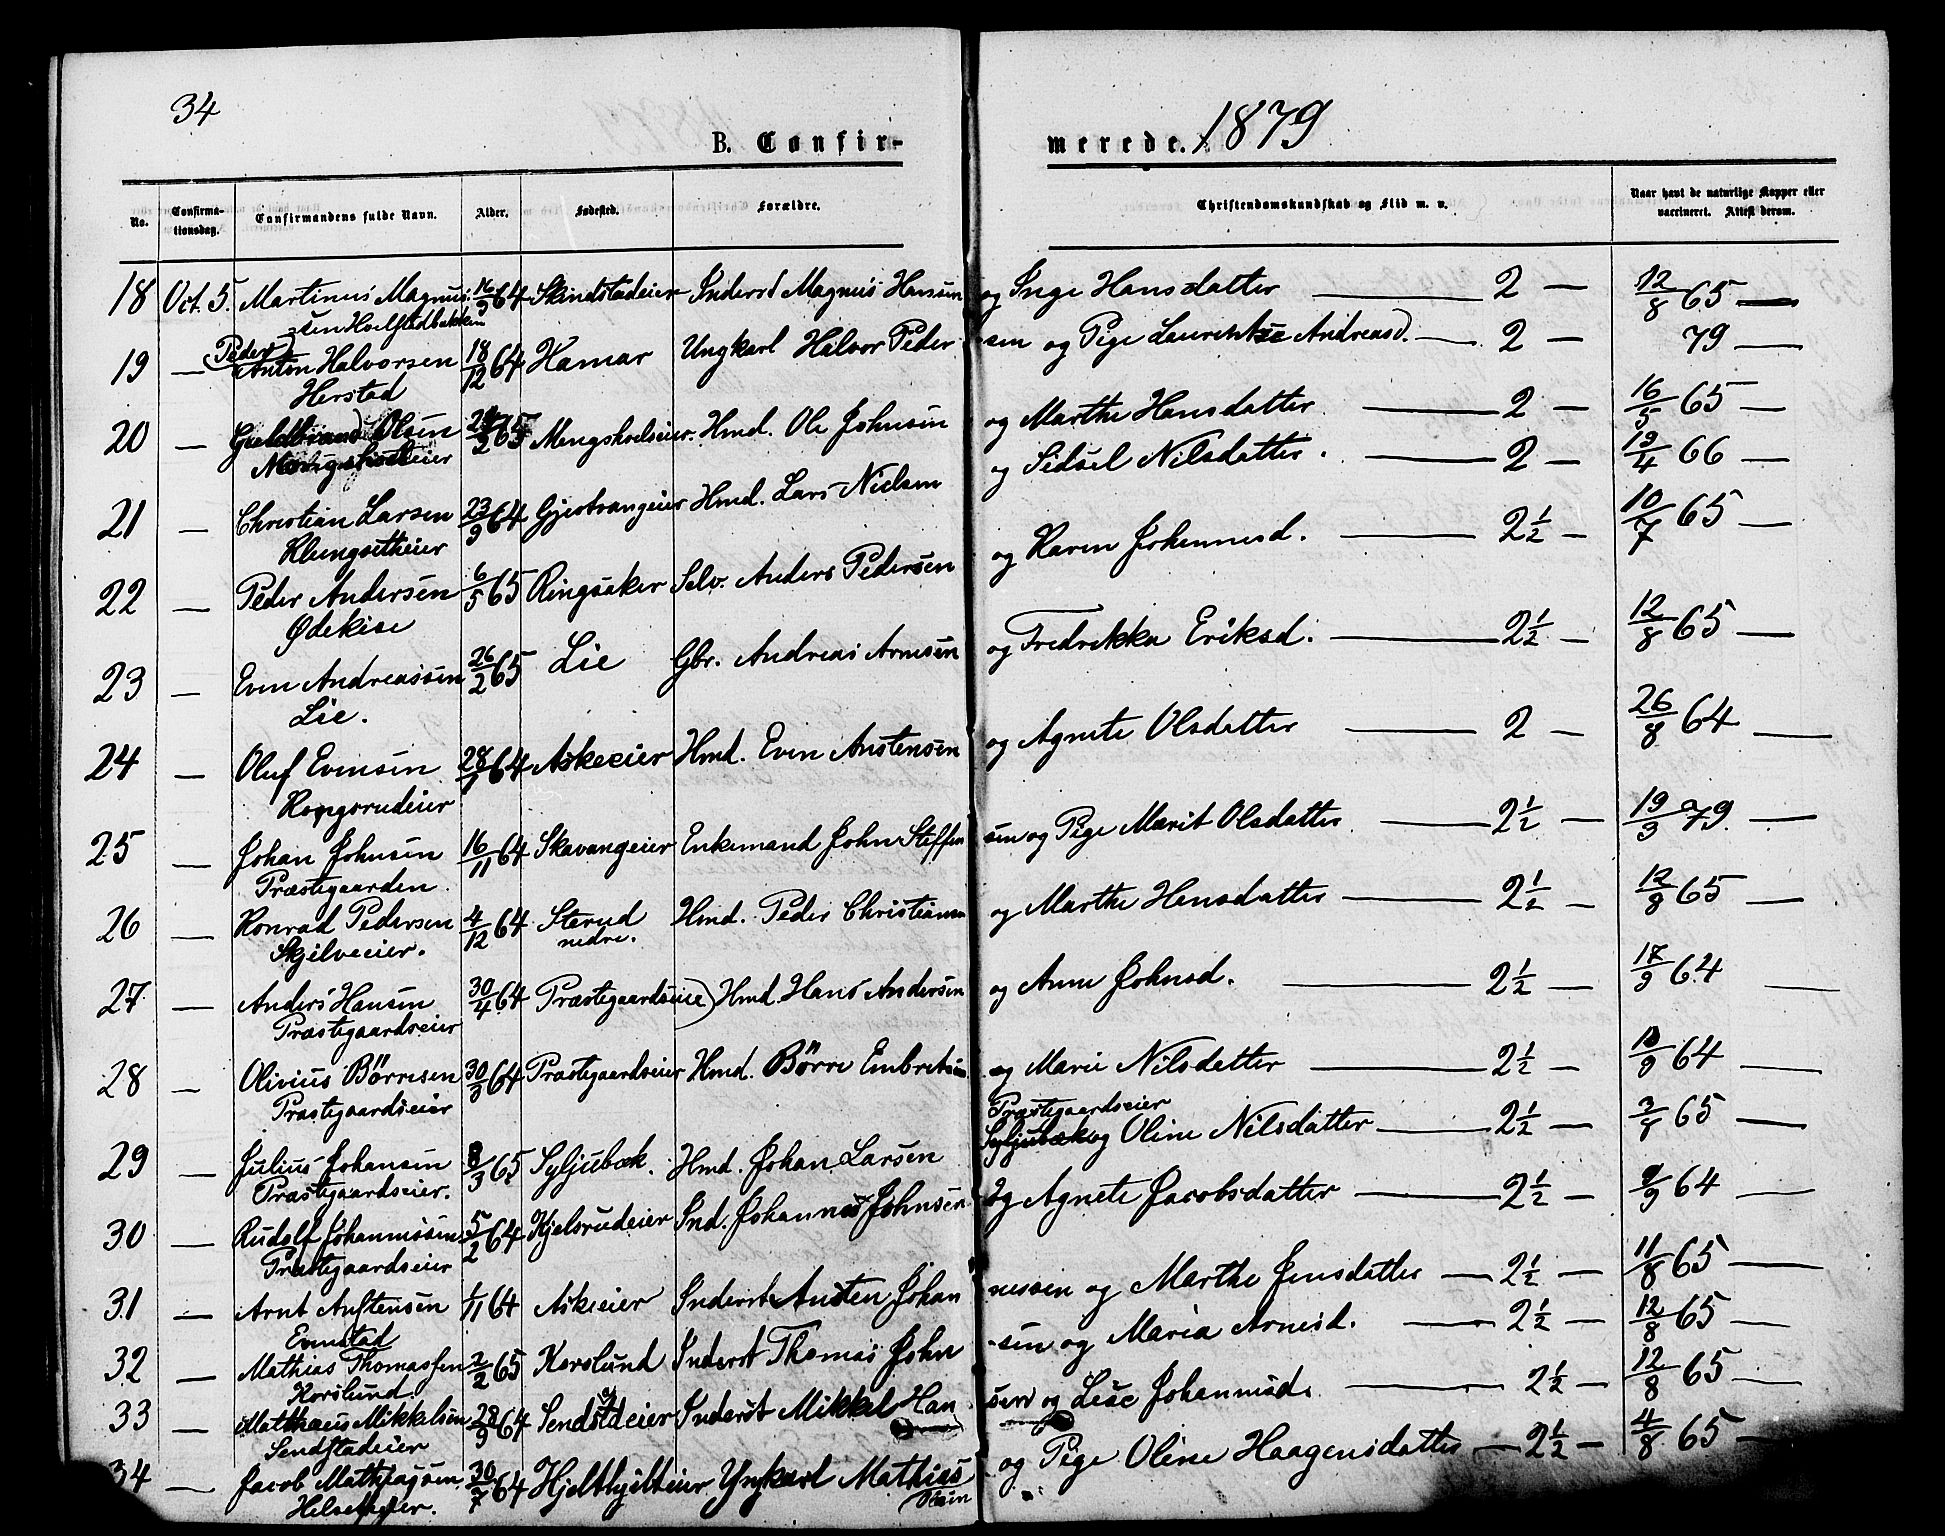 34
B. Confir-
merede. 1879
No.
Confirma-
tionsdag.
Confirmandens fulde Navn.
Alder.
Fødested.
Forældre.
Christendomskundskab og Flid m. v.
Naar havt de naturlige Kopper eller
vaccineret. Attest derom.
18 Oct. 5. Martinus Magnus- 64 Skindstadeier Inderst Magnus Hansen og Inge Hansdatter — 2 — 12/8 65 —
sen Hoelstadbakken
19 — (Peder) Anton Halvorsen 18/12 64 Hamar Ungkarl Halvor Peder- sen og Pige Laurentse Andreasd. — 2 — 79 —
Herstad
20 — Guldbrand Olsen 65 Mengshoelseier. Hmd. Ole Johnsen og Marthe Hansdatter — 2 — 16/5 65 —
Mengshoeleier
21 — Christian Larsen 23/9 64 Gjestvangeier Hmd. Lars Nielsen og Sidsel Nilsdatter. — 2 — 19/4 66 —
Klungsetheier
22 — Peder Andersen 6/5 65 Ringsaker Selv. Anders Pedersen og Karen Johannesd. — 2 1/2 — 10/7 65 —
Ødekise
23 — Even Andreassen 26/2 65 Lie Gbr. Andreas Arnesen og Fredrikke Eriksd. — 2 1/2 — 12/8 65 —
Lie.
24 — Oluf Evensen 64 Askeeier Hmd. Even Austensen og Agnete Olsdatter — 2 — 26/8 64 —
Kongsrudeier
25 — Johan Johnsen 16/11 64 Skavangeier Enkemand John Steffen sen og Pige Marit Olsdatter — 2 1/2 — 19/3 79. —
Præstegaarden.
26 — Konrad Pedersen 4/12 64 Sterud nedre. Hmd. Peder Christiansen og Marthe Hansdatter — 2 1/2 — 12/8 65 —
Skjelveeier.
27 — Anders Hansen 30/4 64 Præstegaardseie) Hmd. Hans Andersen og Anne Johnsd. — 2 1/2 — 17/9 64 —
Præstegaardseier
28 — Olivius Börresen 30/3 64 Præstegaardseier Hmd. Börre Embretsen og Marie Nilsdatter — 2 1/2 — 64 —
Præstegaardseier
Præstegaardseier
29 — Julius Johansen 8/3 65 Syljubæk. Hmd. Johan Larsen Syljubæk og Oline Nilsdatter — 2 1/2 — 65 —
Præstegaardseier.
30 — Rudolf Johannessen 5/2 64 Kjelsrudeier Ind. Johannes Johnsen og Agnete Jacobsdatter — 2 1/2 — 9/9 64 —
Præstegaardseier
31 — Arnt Austensen 1/11 64 Askeeier Inderst Austen Johan nessen og Marthe Jensdatter — 2 1/2 — 11/8 65 —
Evenstad
32 — Mathias Thomassen 2/2 65 Korslund Inderst Thomas John -sen og Maria Arnesd. — 2 1/2 — 12/8 65 —
Korslund.
33 — Matthæus Mikkelsen 28/9 64 Sendstdeier Inderst Mikkel Han sen og Lise Johannesd. — 2 1/2 — 12/8 65 —
Sendstadeier
34 — Jacob Mathiassen 30/7 64 Ungkarl Mathias og Pige Oline Haagensdatter — 2 1/2 — 4/8 65 —